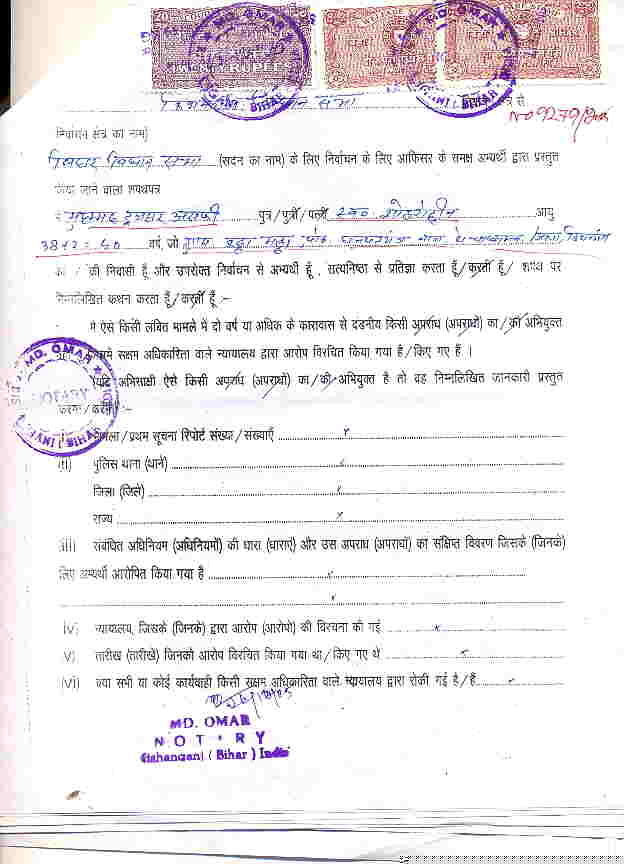 MD. OMAR
KISHANGANJ ( BIHAR )
TWENTY RUPEES
विधान सभा क्षेत्र से
No 9279/2005
निर्वाचन क्षेत्र का नाम)
बिहार विधान सभा (सदन का नाम) के लिए निर्वाचन के लिए आफिसर के समक्ष अभ्यर्थी द्वारा प्रस्तुत
किया जाने वाला शपथपत्र
पुत्र/पुत्री/पत्नी स्व० आयु
38+2=40 वर्ष, जो ग्राम जिला किशनगंज
का / की निवासी हूँ और उपरोक्त निर्वाचन से अभ्यर्थी हूँ , सत्यनिष्ठा से प्रतिज्ञा करता हूँ/करती हूँ/ शपथ पर
निम्नलिखित कथन करता हूँ/करती हूँ :-
मै ऐसे किसी लंबित मामले में दो वर्ष या अधिक के कारावास से दंडनीय किसी अपराध (अपराधों) का/की अभियुक्त
जिसमे सक्षम अधिकारिता वाले न्यायालय द्वारा आरोप विरचित किया गया है/किए गए है ।
यदि अभिसाक्षी ऐसे किसी अपराध (अपराधों) का/की अभियुक्त है तो वह निम्नलिखित जानकारी प्रस्तुत
करेगा/करेगी :-
MD. OMAR
NOTARY
BIHAR
मामला/प्रथम सूचना रिपोर्ट संख्या/संख्याएँ x
ii) पुलिस थाना (थाने) x
जिला (जिले) x
राज्य x
iii) संबंधित अधिनियम (अधिनियमों) की धारा (धाराएं) और उस अपराध (अपराधों) का संक्षिप्त विवरण जिसके (जिनके)
लिए अभ्यर्थी आरोपित किया गया है x
x
iv) न्यायालय, जिसके (जिनके) द्वारा आरोप (आरोपो) की विरचना की गई x
v) तारीख (तारीखें) जिनको आरोप विरचित किया गया था/किए गए थे x
vi) क्या सभी या कोई कार्यवाही किसी सक्षम अधिकारिता वाले न्यायालय द्वारा रोकी गई है/हैं x
MD. OMAR
NOTARY
Kishanganj ( Bihar ) India